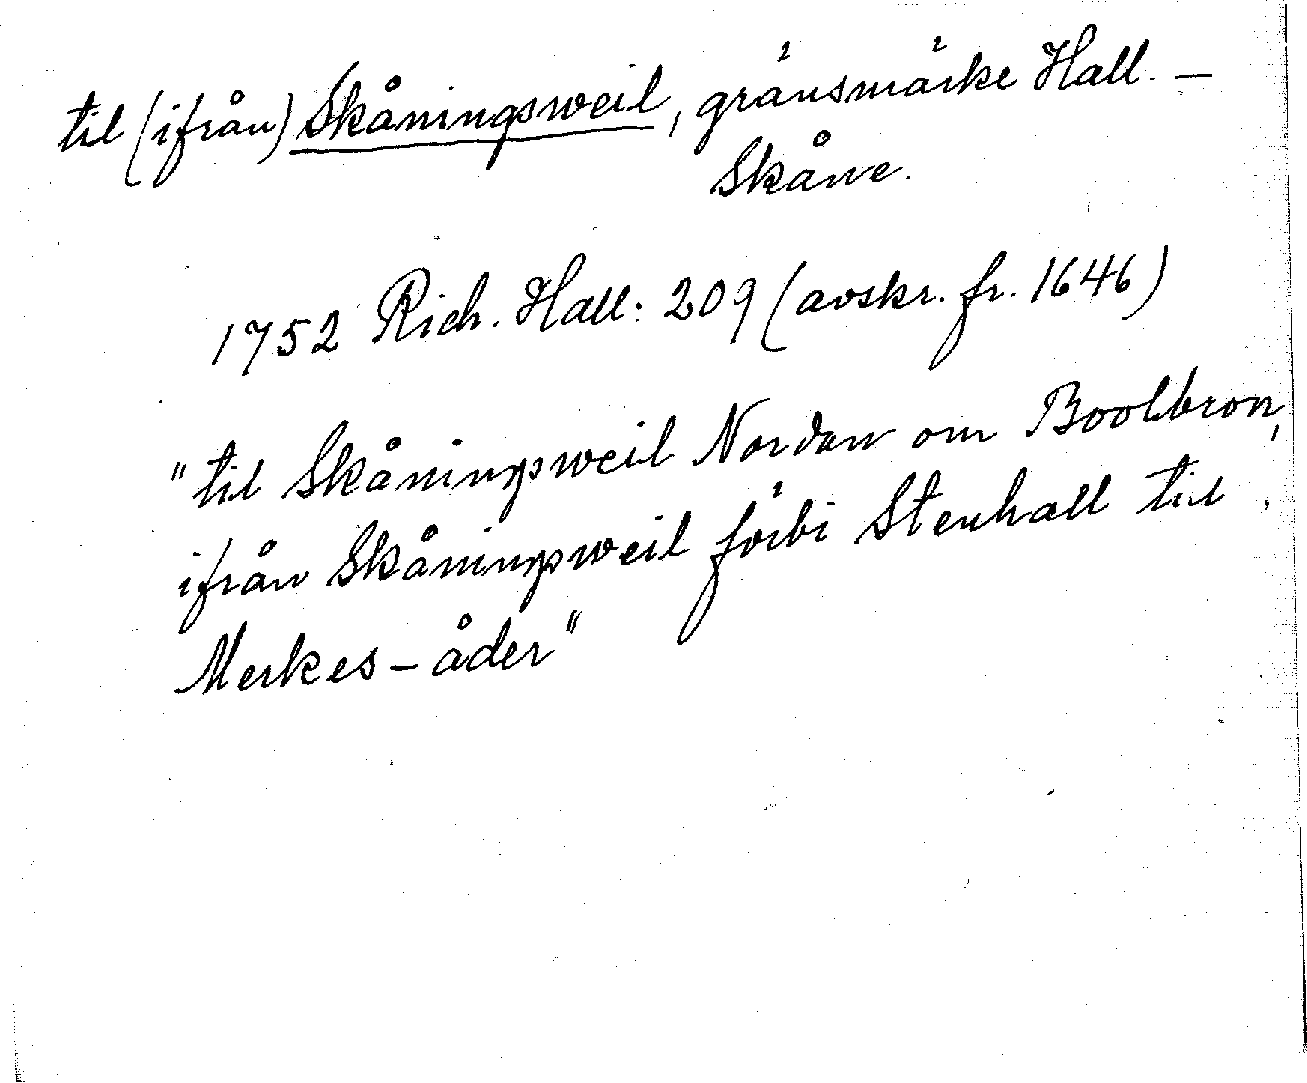 til (ifrån) Skåningsweil, gränsmärke Hall. –
Skåne.
1752 Rich. Hall: 209 (avskr. fr. 1646)
"til Skåningsweil Nordan om Boolbron,
ifrån Skåningsweil förbi Stenhall til
Merkes-åder"